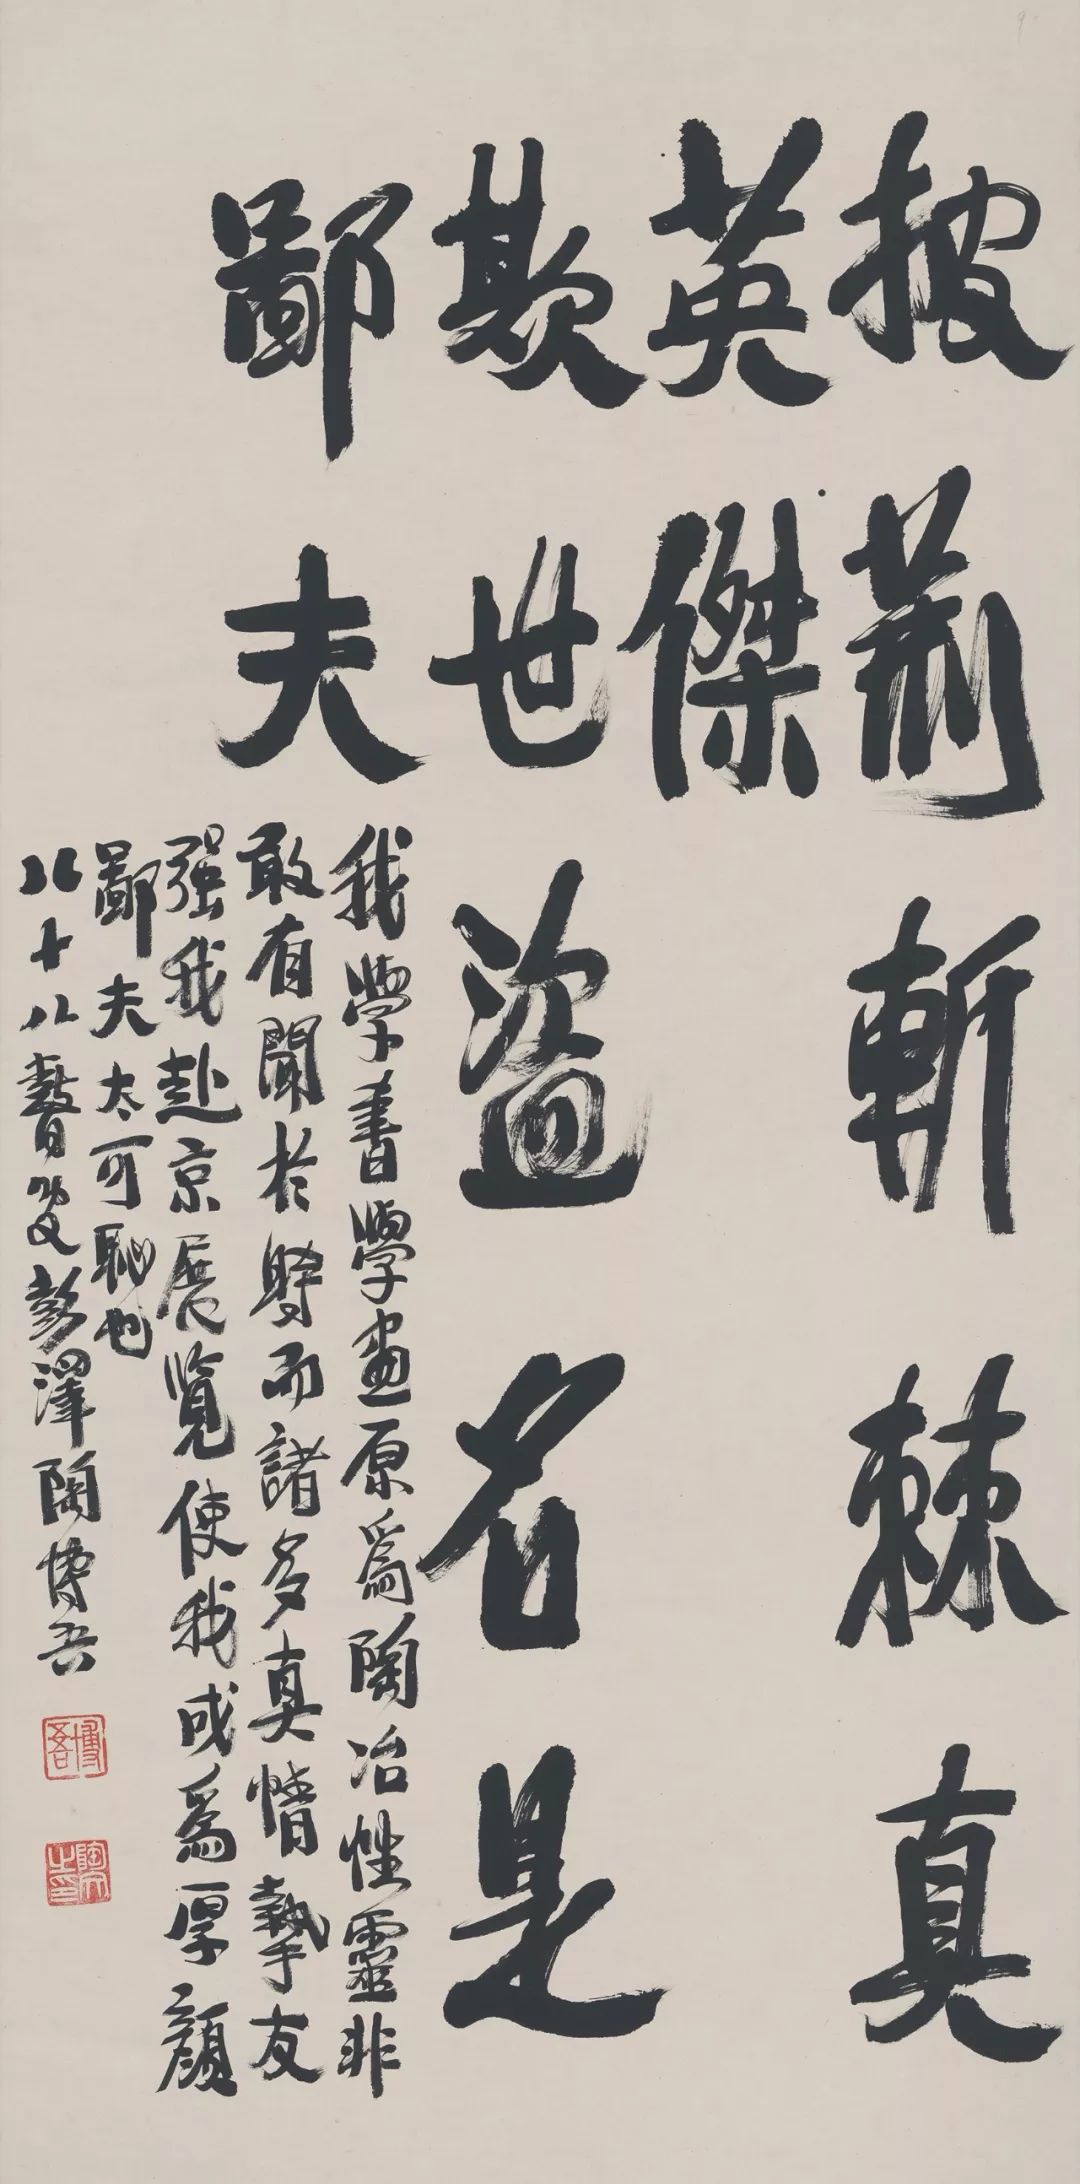 披荊斬棘真
英傑
欺世盜名是
鄙夫
我學書學畫原為陶冶性靈非
敢有聞於時而諸多真情摯友
强我赴京展覽使我成為厚顏
鄙夫太可恥也
八十八瞽叟彭澤陶博吾
博吾
陶文之印